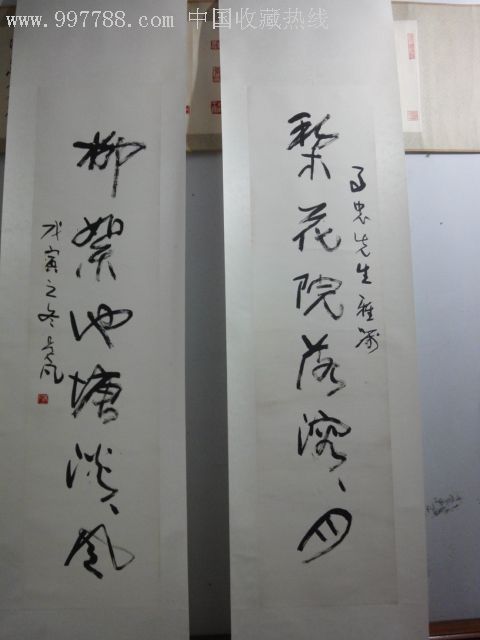 www.997788.com 中国收藏热线
忠先生雅
梨花院落溶、月
柳絮池塘淡、風
戊寅之冬